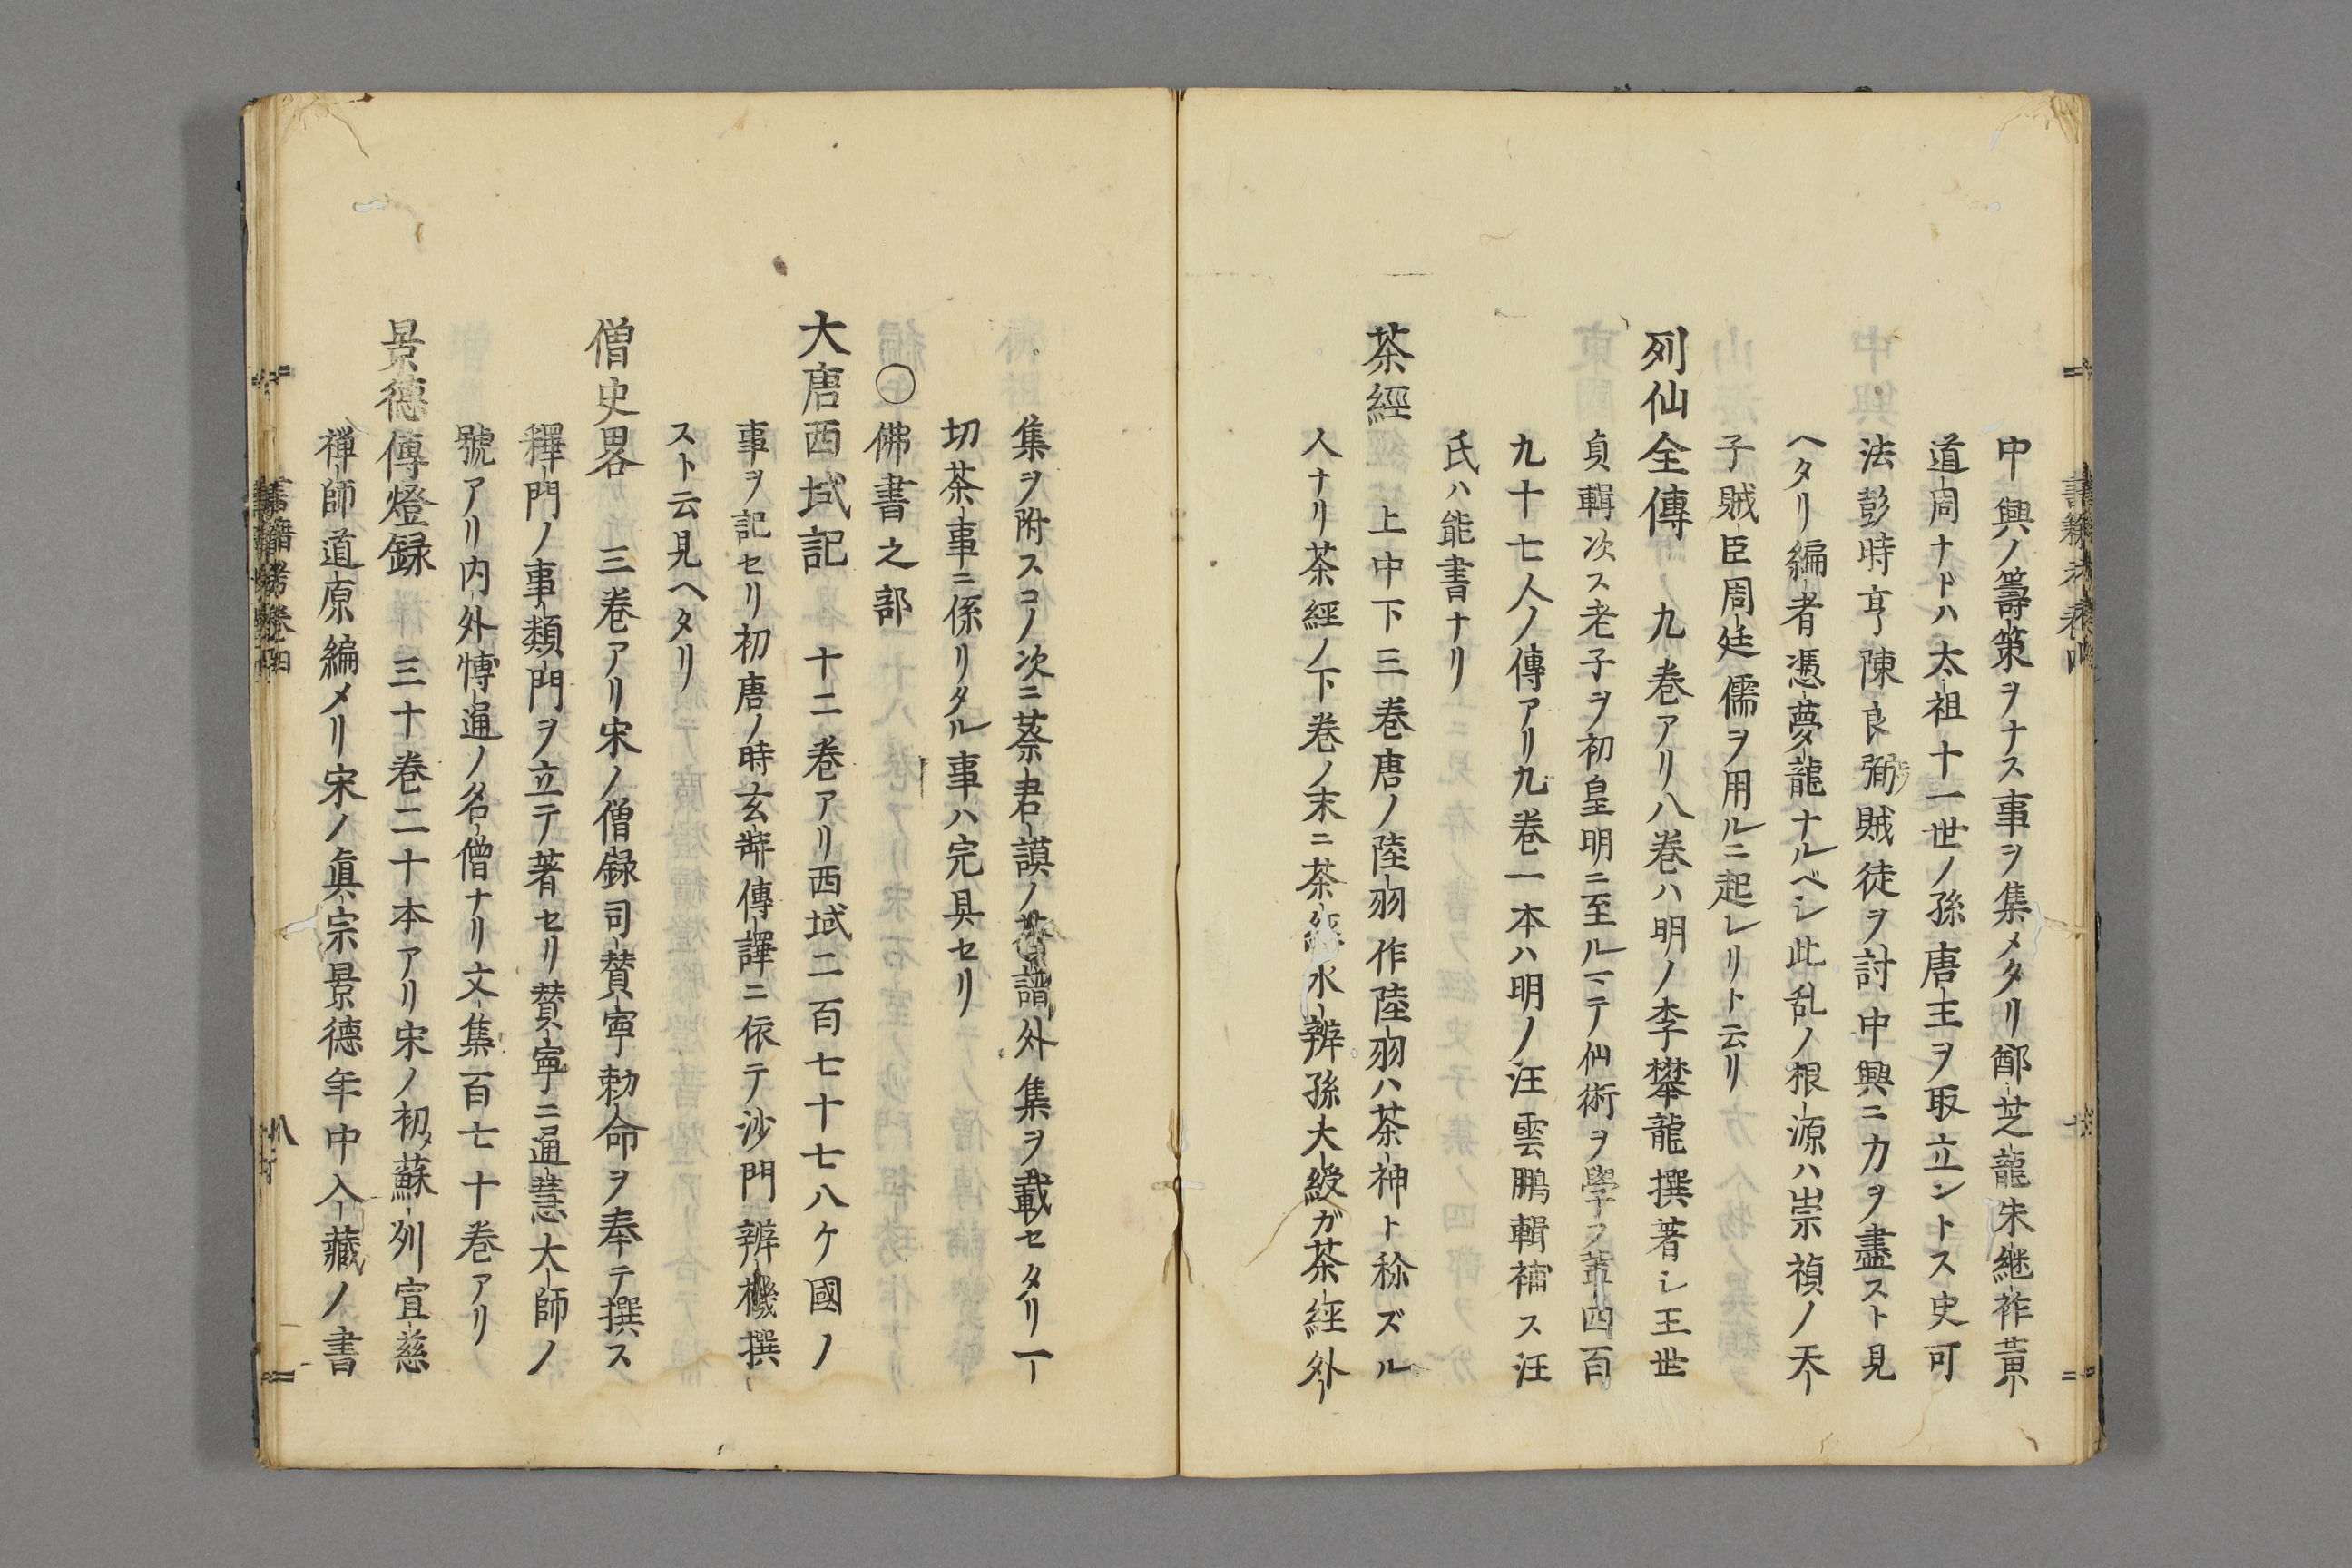 中興ノ籌策ヲナス事ヲ集メタリ鄭芝龍朱継祚黄
道周ナドハ太祖十一世ノ孫唐王ヲ取立ントス史可
法彭時亨陳良弼賊徒ヲ討中興ニ力ヲ盡スト見
ヘタリ編者憑夢龍ナルベシ此乱ノ根源ハ崇禎ノ天
子賊臣周廷儒ヲ用ルニ起レリト云リ
列仙全傳 九巻アリ八巻ハ明ノ李攀龍撰著シ王世
貞輯次ス老子ヲ初皇明ニ至ルマテ仙術ヲ學フ輩四百
九十七人ノ傳アリ九巻一本ハ明ノ汪雲鵬輯補ス汪
氏ハ能書ナリ
茶經 上中下三巻唐ノ陸羽作陸羽ハ茶神ト称ズル
人ナリ茶經ノ下巻ノ末ニ茶經水辨孫大綬ガ茶経外
集ヲ附スコノ次ニ蔡君謨ノ茶譜外集ヲ載セタリ一
切茶事ニ係リタル事ハ完具セリ
○佛書之部
大唐西域記 十二巻アリ西域二百七十七八ケ國ノ
事ヲ記セリ初唐ノ時玄奘傳譯ニ依テ沙門辨機撰
スト云見ヘタリ
僧史畧 三巻アリ宋ノ僧録司賛寧勅命ヲ奉テ撰ス
釋門ノ事類門ヲ立テ著セリ賛寧ニ通慧大師ノ
號アリ内外博通ノ名僧ナリ文集百七十巻アリ
景徳傳燈録 三十巻二十本アリ宋ノ初メ蘇列宣慈
禅師道原編メリ宋ノ眞宗景徳年中入藏ノ書
書籍考巻四
八